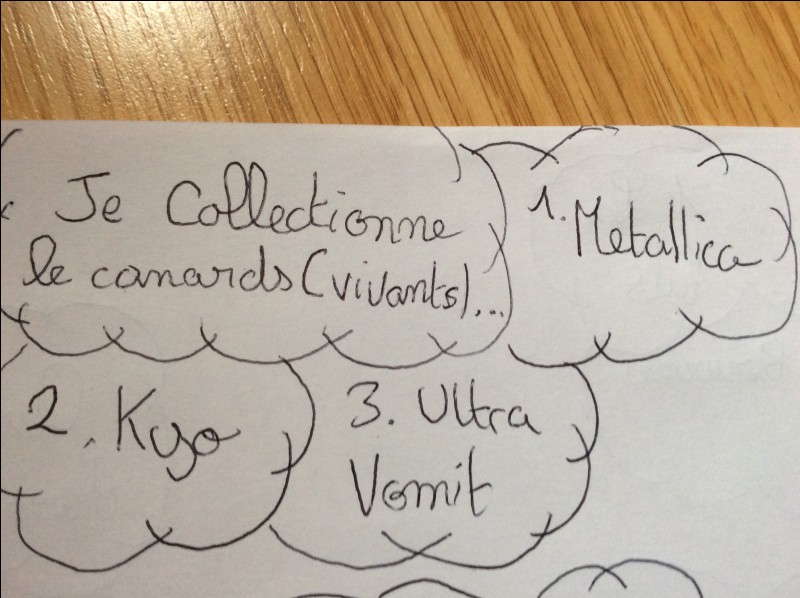 Je Collectionne
le canards (vivants)...
1. Metallica
2. Kyo
3. Ultra
Vomit